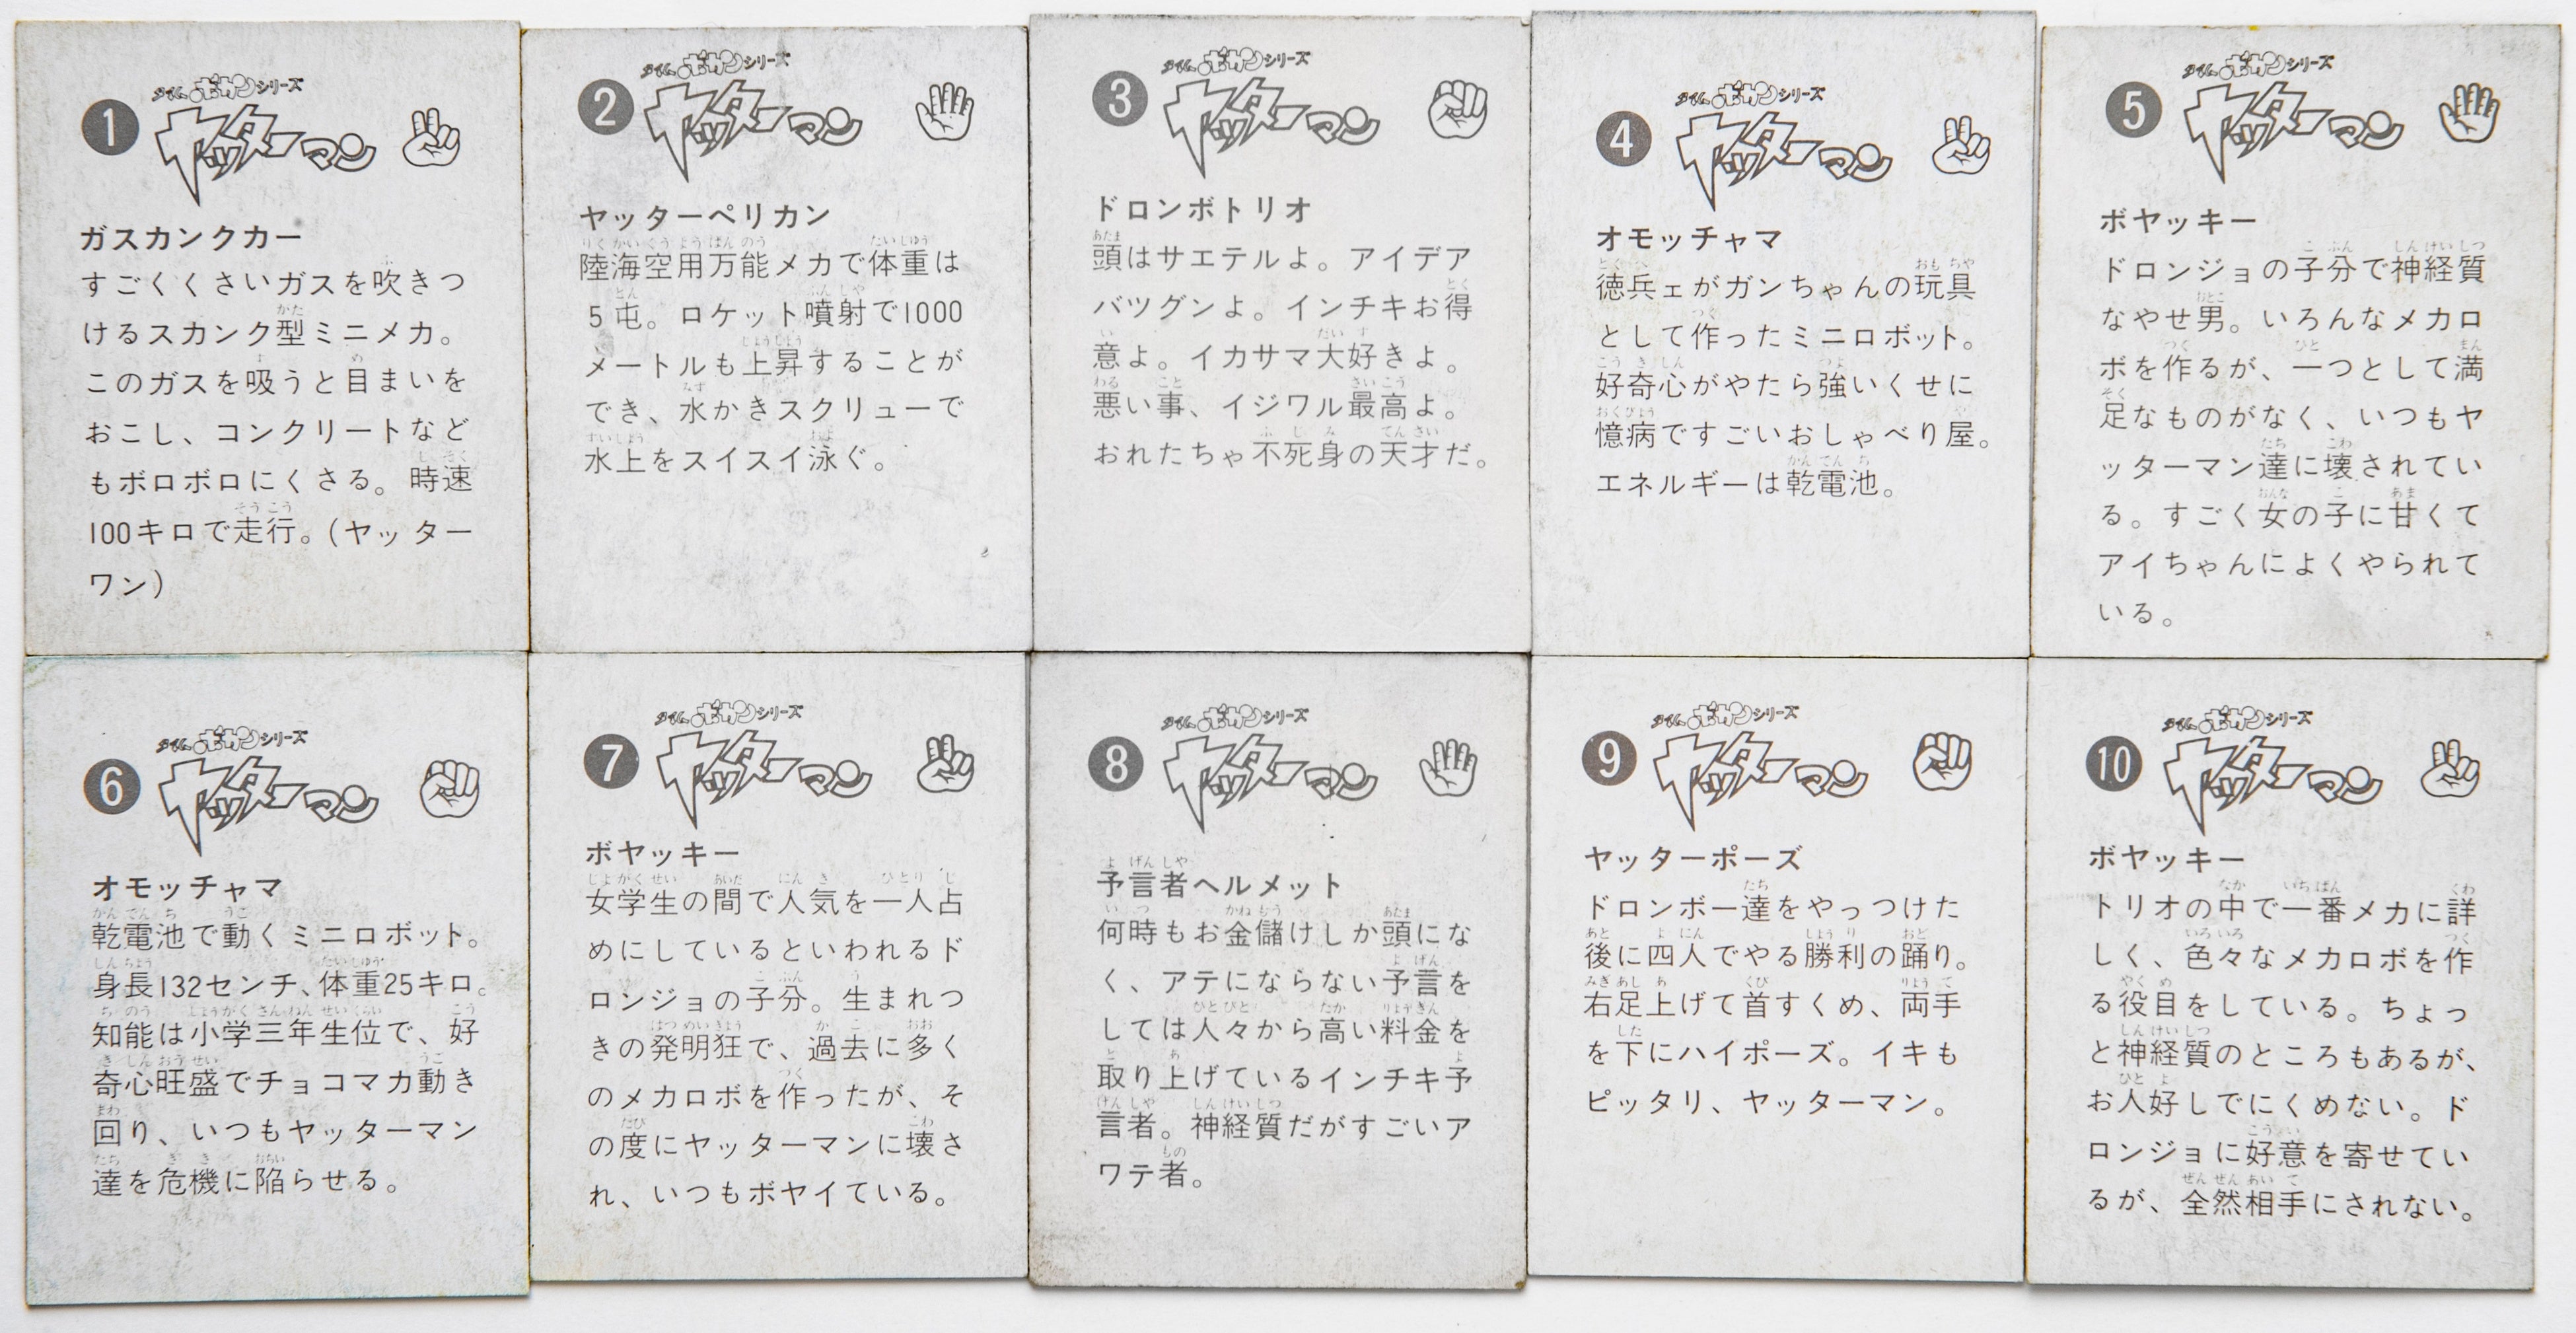 1
タイムボカンシリーズ
ヤッターマン
ガスカンクカー
すごくくさいガスを吹きつ
けるスカンク型ミニメカ。
このガスを吸うと目まいを
おこし、コンクリートなど
もボロボロにくさる。時速
100キロで走行。(ヤッター
ワン)
2
タイムボカンシリーズ
ヤッターマン
ヤッターペリカン
陸海空用万能メカで体重は
5屯。ロケット噴射で1000
メートルも上昇することが
でき、水かきスクリューで
水上をスイスイ泳ぐ。
3
タイムボカンシリーズ
ヤッターマン
ドロンボトリオ
頭はサエテルよ。アイデア
バツグンよ。インチキお得
意よ。イカサマ大好きよ。
悪い事、イジワル最高よ。
おれたちゃ不死身の天才だ。
4
タイムボカンシリーズ
ヤッターマン
オモッチャマ
徳兵ェがガンちゃんの玩具
として作ったミニロボット。
好奇心がやたら強いくせに
憶病ですごいおしゃべり屋。
エネルギーは乾電池。
5
タイムボカンシリーズ
ヤッターマン
ボヤッキー
ドロンジョの子分で神経質
なやせ男。いろんなメカロ
ボを作るが、一つとして満
足なものがなく、いつもヤ
ッターマン達に壊されてい
る。すごく女の子に甘くて
アイちゃんによくやられて
いる。
6
タイムボカンシリーズ
ヤッターマン
オモッチャマ
乾電池で動くミニロボット。
身長132センチ、体重25キロ。
知能は小学三年生位で、好
奇心旺盛でチョコマカ動き
回り、いつもヤッターマン
達を危機に陥らせる。
7
タイムボカンシリーズ
ヤッターマン
ボヤッキー
女学生の間で人気を一人占
めにしているといわれるド
ロンジョの子分。生まれつ
きの発明狂で、過去に多く
のメカロボを作ったが、そ
の度にヤッターマンに壊さ
れ、いつもボヤイている。
8
タイムボカンシリーズ
ヤッターマン
予言者ヘルメット
何時もお金儲けしか頭にな
く、アテにならない予言を
しては人々から高い料金を
取り上げているインチキ予
言者。神経質だがすごいア
ワテ者。
9
タイムボカンシリーズ
ヤッターマン
ヤッターポーズ
ドロンボー達をやっつけた
後に四人でやる勝利の踊り。
右足上げて首すくめ、両手
を下にハイポーズ。イキも
ピッタリ、ヤッターマン。
10
タイムボカンシリーズ
ヤッターマン
ボヤッキー
トリオの中で一番メカに詳
しく、色々なメカロボを作
る役目をしている。ちょっ
と神経質のところもあるが、
お人好しでにくめない。ド
ロンジョに好意を寄せてい
るが、全然相手にされない。